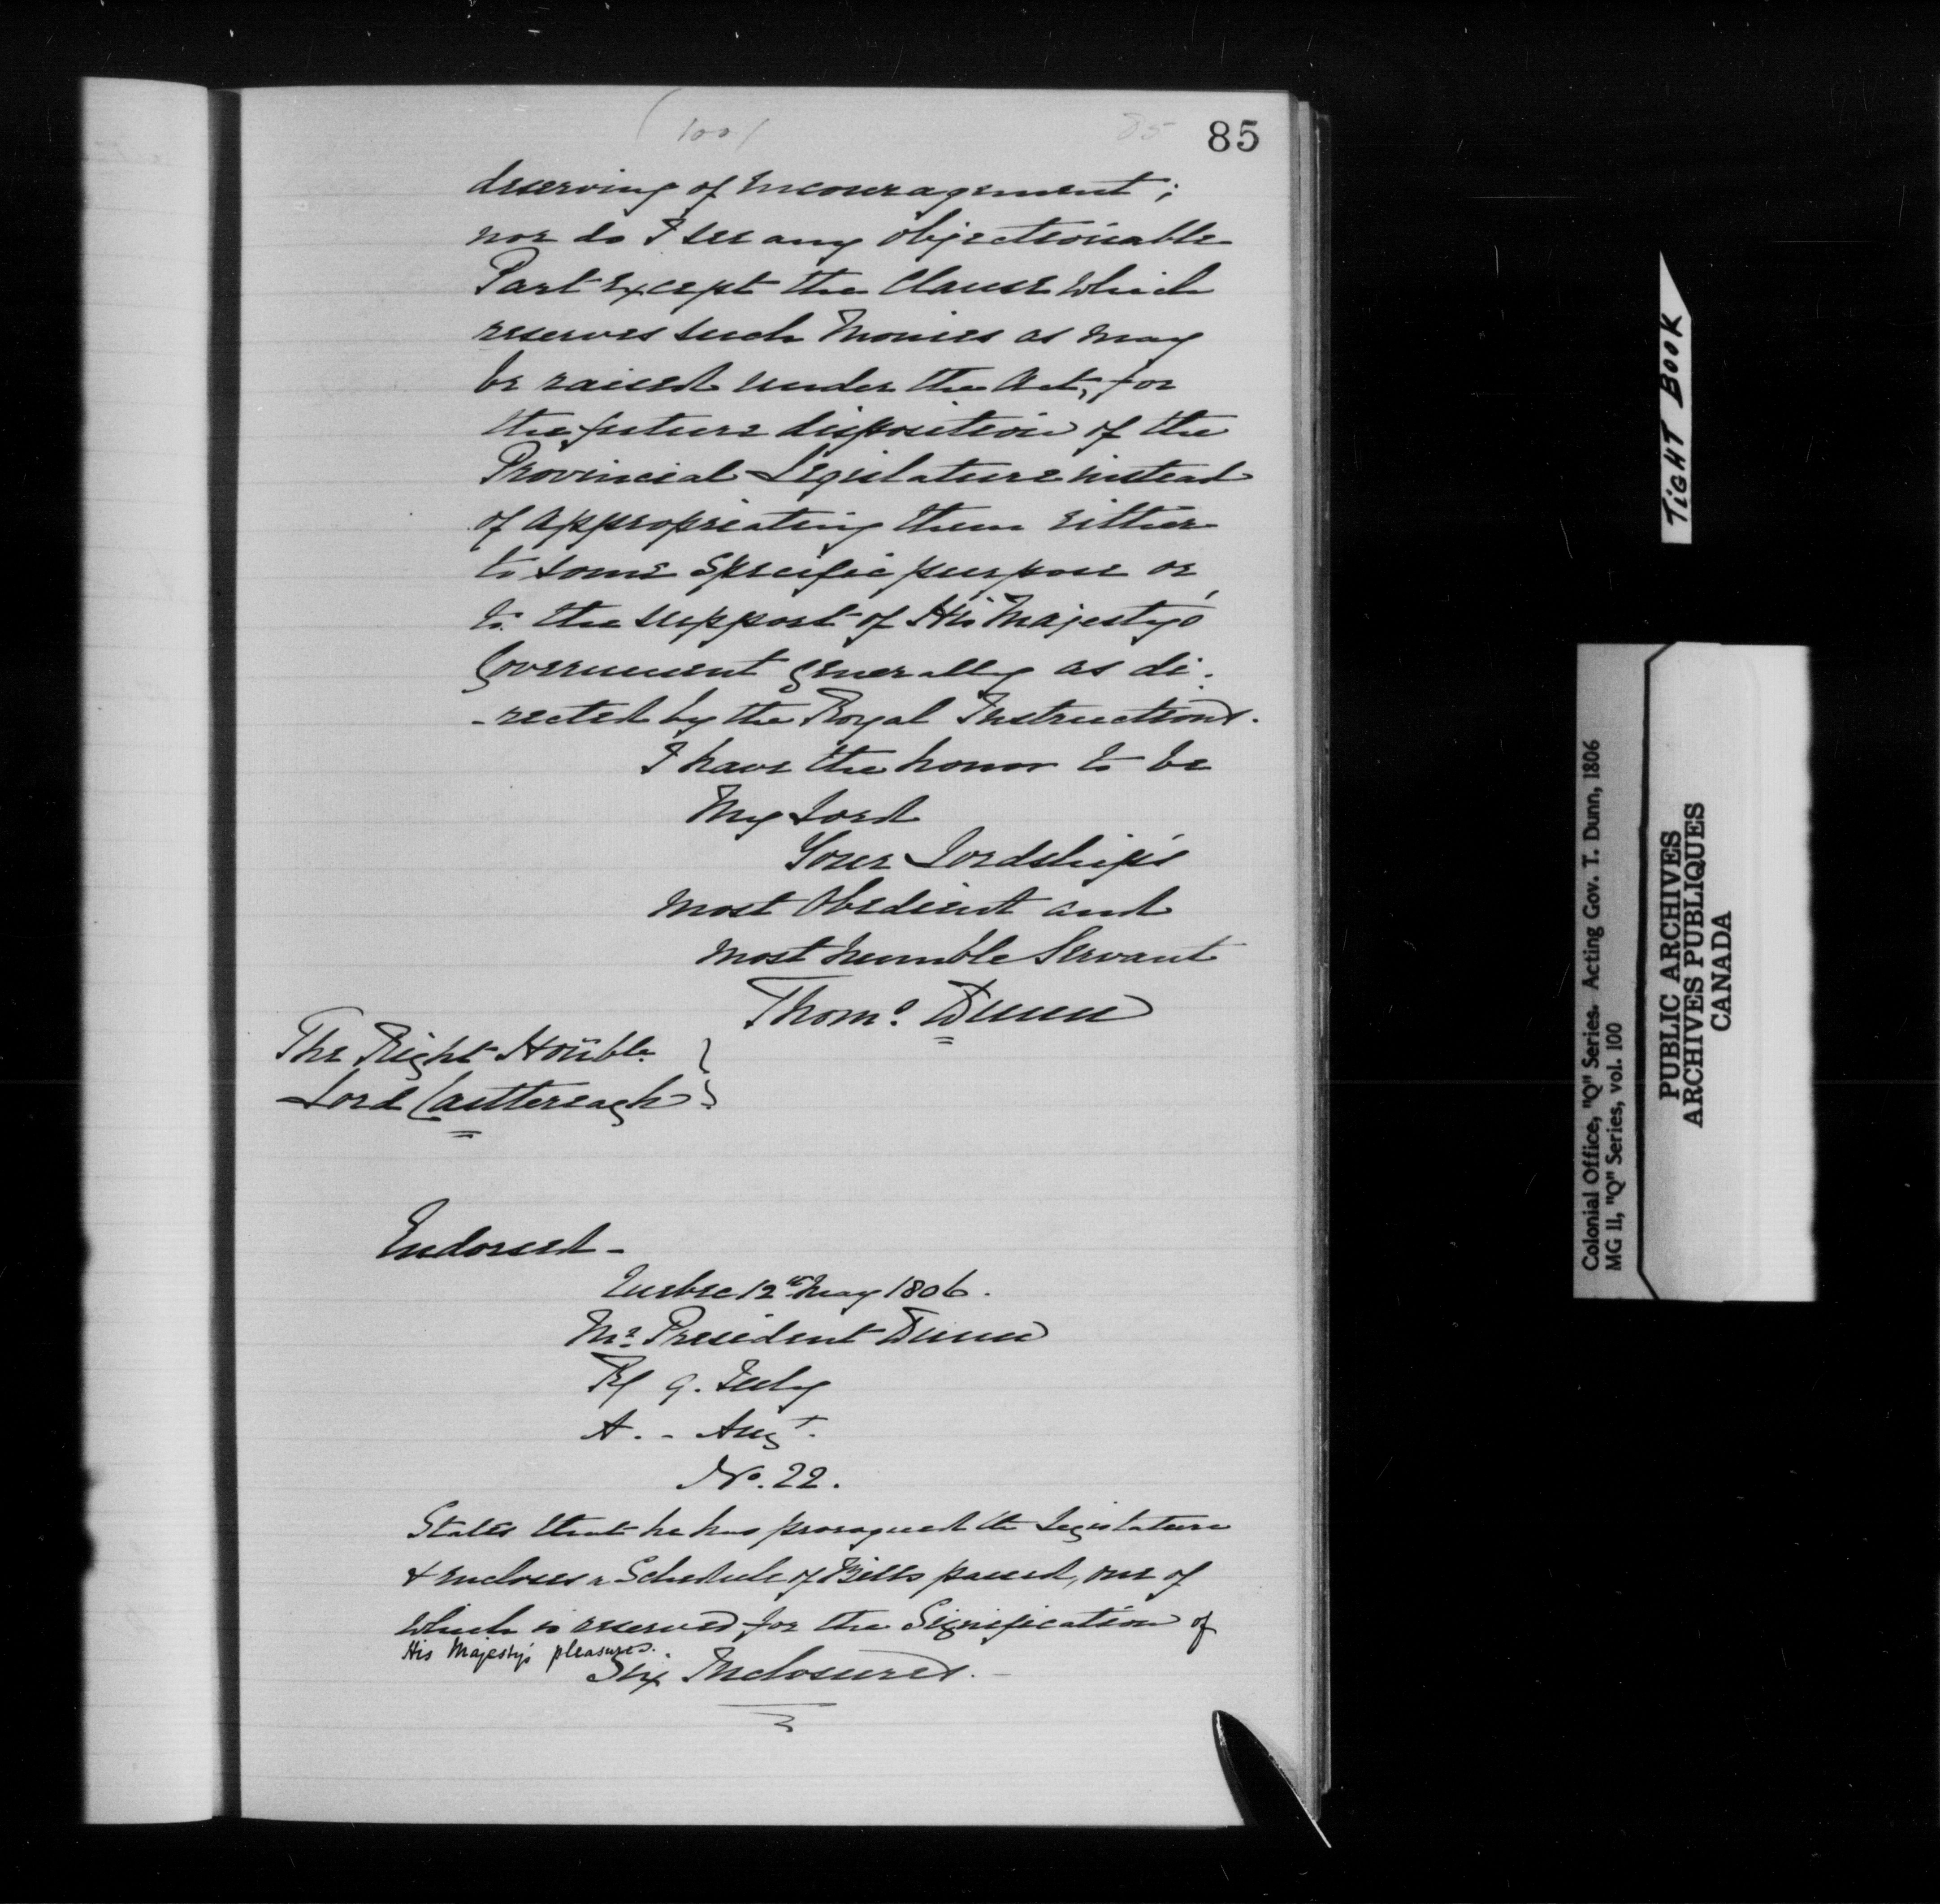 (100)
85
85
deserving of encouragement;
nor do I see any objectionable
Part except the Clause which
reserves such Monies as may
be raised under the Act, for
the future disposition of the
Provincial Legislature instead
of appropriating them either
to some specific purpose or
to the support of His Majesty's
Government generally as di-
-rected by the Royal Instructions.
I have the honor to be
My Lord
Your Lordship's
most Obedient and
most humble Servant
Thoms. Dunn
The Right Honble
Lord Castlereagh
Endorsed -
Quebec 12th May 1806.
Mr. President Dunn
R/ 9. July
A. - Augt.
No. 22.
States that he has prorogued the Legislature
& encloses a Schedule of Bills passed, one of
which is reserved for the Signification of
His Majesty's pleasures.
Six Inclosures. -
TIGHT BOOK
Colonial Office, "Q" Series. Acting Gov. T. Dunn, 1806
MG 11, "Q" Series, vol. 100
PUBLIC ARCHIVES
ARCHIVES PUBLIQUES
CANADA